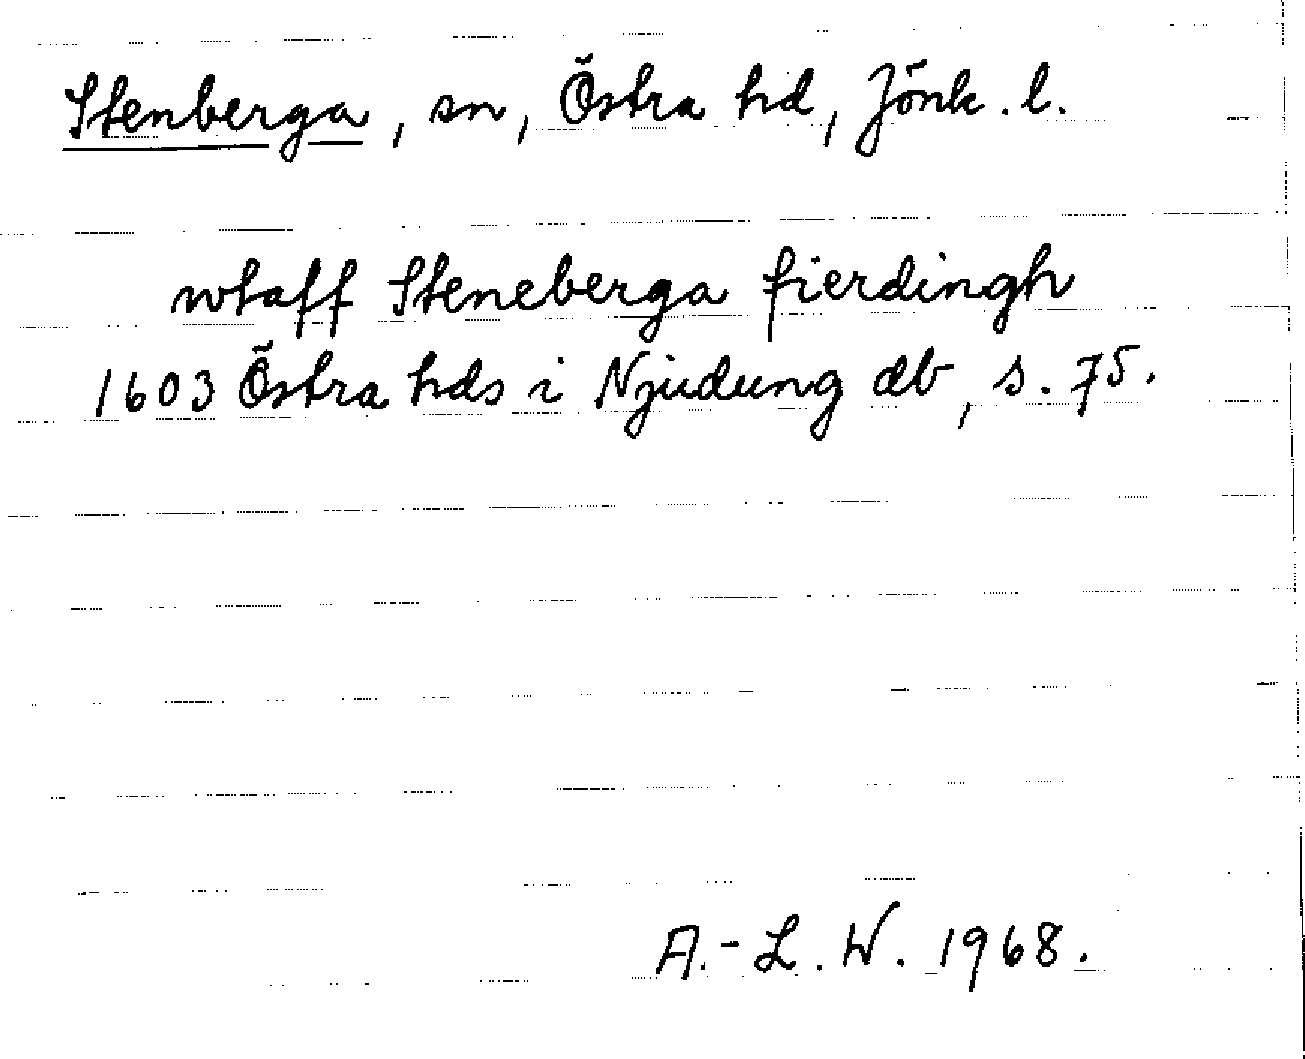 Stenberga, sn, Östra hd, Jönk. l.
wtaff Steneberga fierdingh
1603 Östra hds i Njudung db, s. 75.
A.-L. W. 1968.